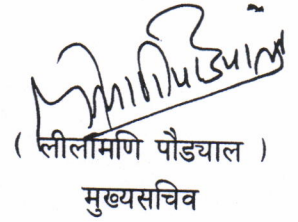 ( लीलामणि पौड्याल )
मुख्यसचिव